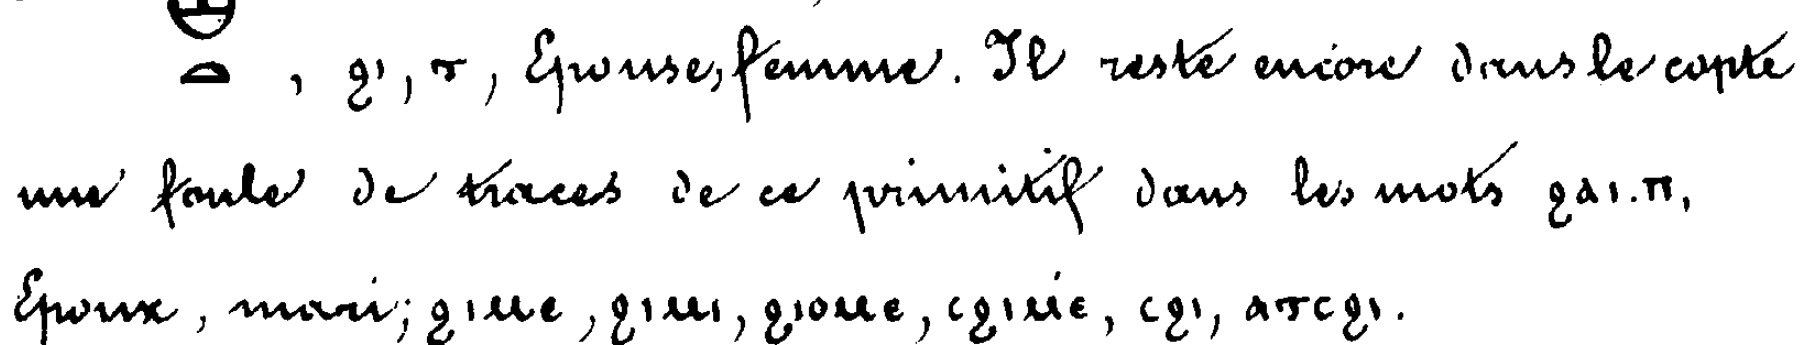 , ϩⲓ, ⲧ, Epouse, femme. Il reste encore dans le copte
une foule de traces de ce primitif dans les mots ϩⲁⲓ.ⲡ,
Epoux, mari; ϩⲓⲙⲉ, ϩⲓⲙⲓ, ϩⲓⲟⲙⲉ, ⲥϩⲓⲙⲉ, ⲥϩⲓ, ⲁⲧⲥϩⲓ.